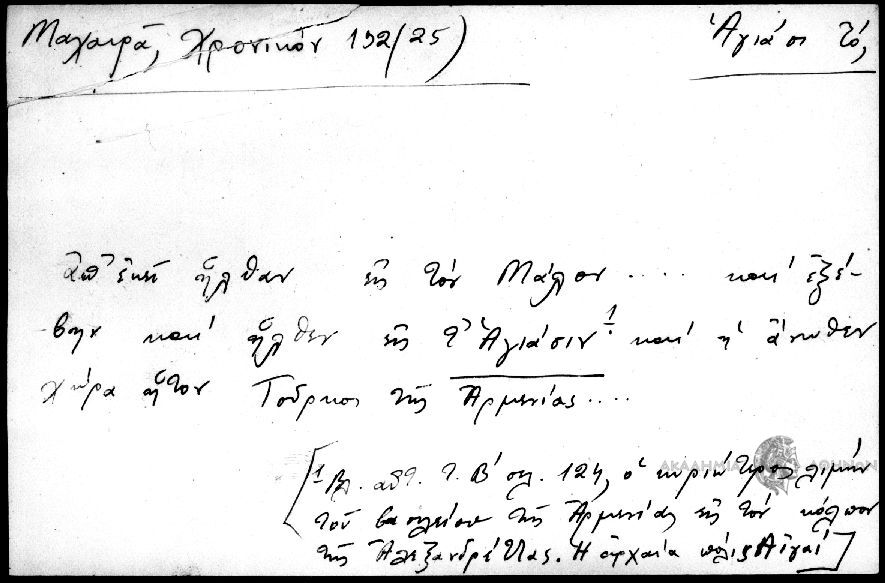 Μαχαιρᾶ, Χρονικόν 192/25) Ἁγιάσι τό,
ἀπ' ἐκεῖ ἦλθαν εἰς τόν Μάλον .... καί ἐξέ-
βην καί ἦλθεν εἰς τ' Ἁγιάσιν¹ καί ἡ ἄνωθεν
χώρα ἦτον Τοῦρκοι τῆς Ἀρμενίας ....
[¹ Βλ. αὐτ. τ. Β' σελ. 124, ὁ κυριώτερος λιμήν
τοῦ βασιλείου τῆς Ἀρμενίας εἰς τόν κόλπον
τῆς Ἀλεξανδρέττας. Ἡ ἀρχαία πόλις Αἰγαί]
ΑΚΑΔΗΜΙΑ ΑΘΗΝΩΝ